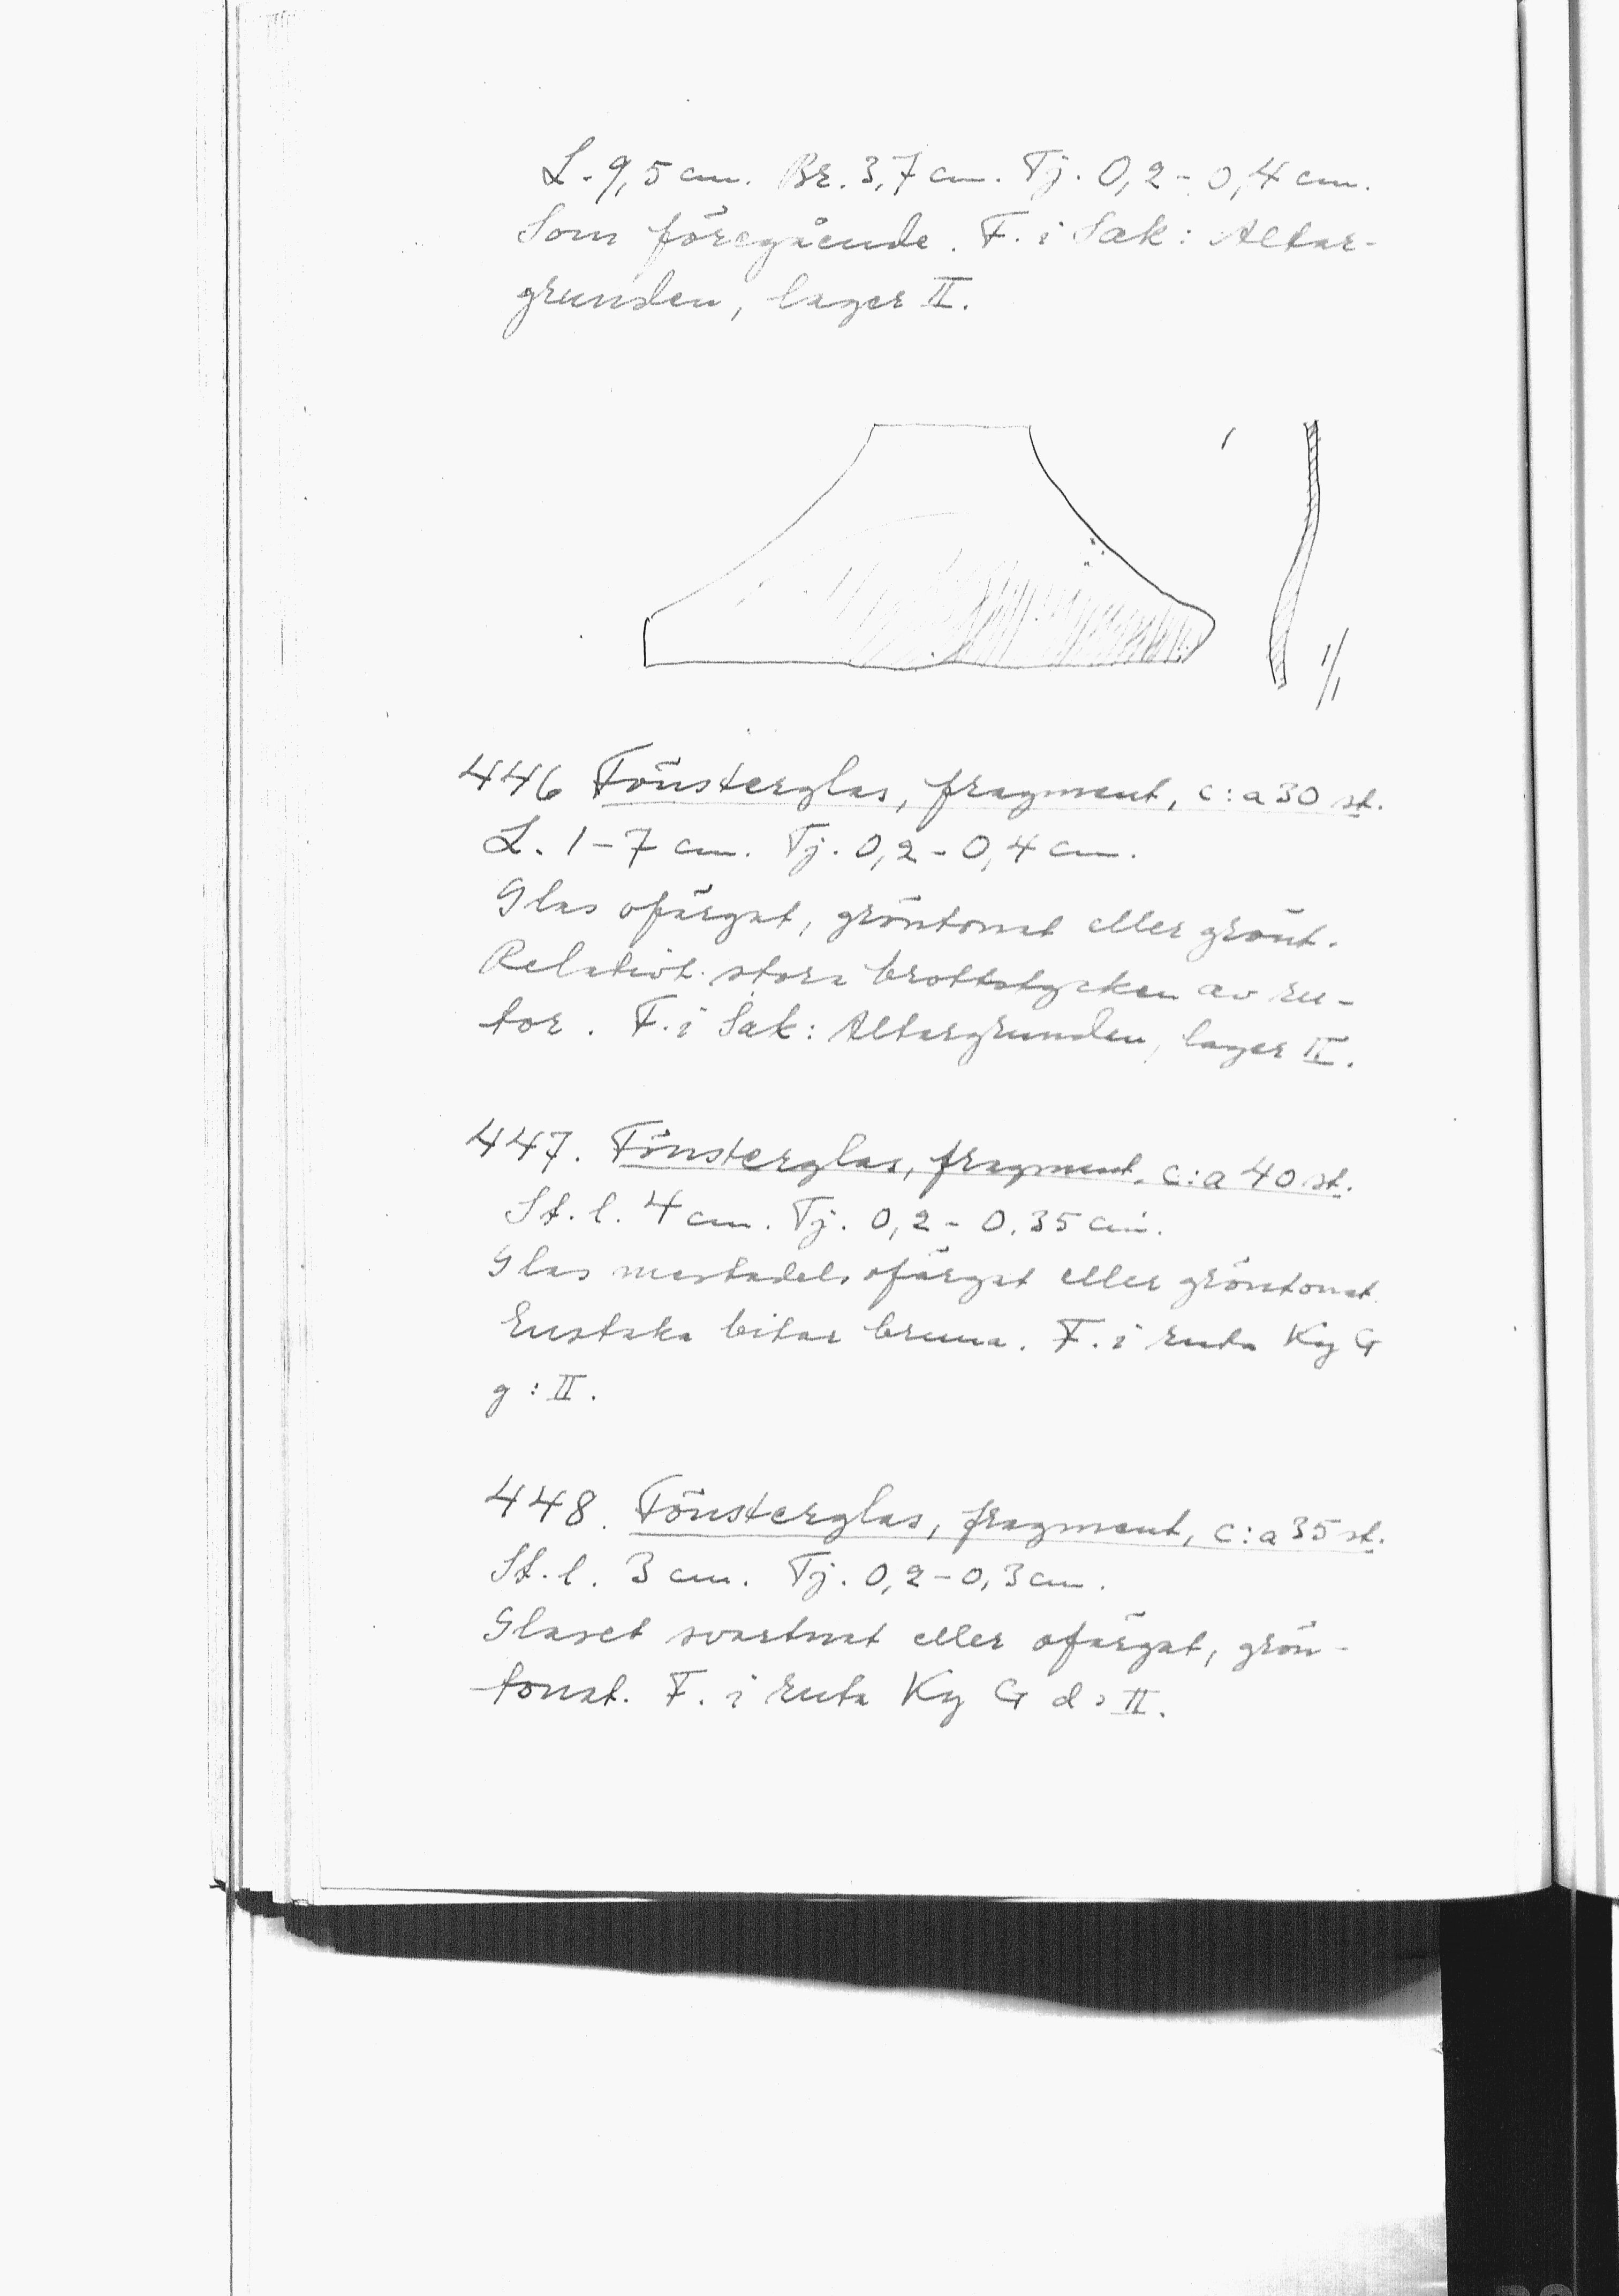 L. 9,5 cm. Br. 3,7 cm. Tj. 0,2 - 0,4 cm.
Som föregående. F. i Sak: Altar-
grunden, lager II.
1/1
446 Fönsterglas, fragment, c:a 30 st.
L. 1-7 cm. Tj. 0,2 - 0,4 cm.
Glas ofärgat, gröntonat eller grönt.
Relativt stora brottstycken av ru-
tor. F. i Sak: Altargrunden, lager II.
447. Fönsterglas, fragment, c:a 40 st.
St. l. 4 cm. Tj. 0,2 - 0,35 cm.
Glas mestadels ofärgat eller gröntonat.
Enstaka bitar bruna. F. i ruta Ky G
g : II.
448. Fönsterglas, fragment, c:a 35 st.
St. l. 3 cm. Tj. 0,2 - 0,3 cm.
Glaset svartnat eller ofärgat, grön-
tonat. F. i ruta Ky G d : II.